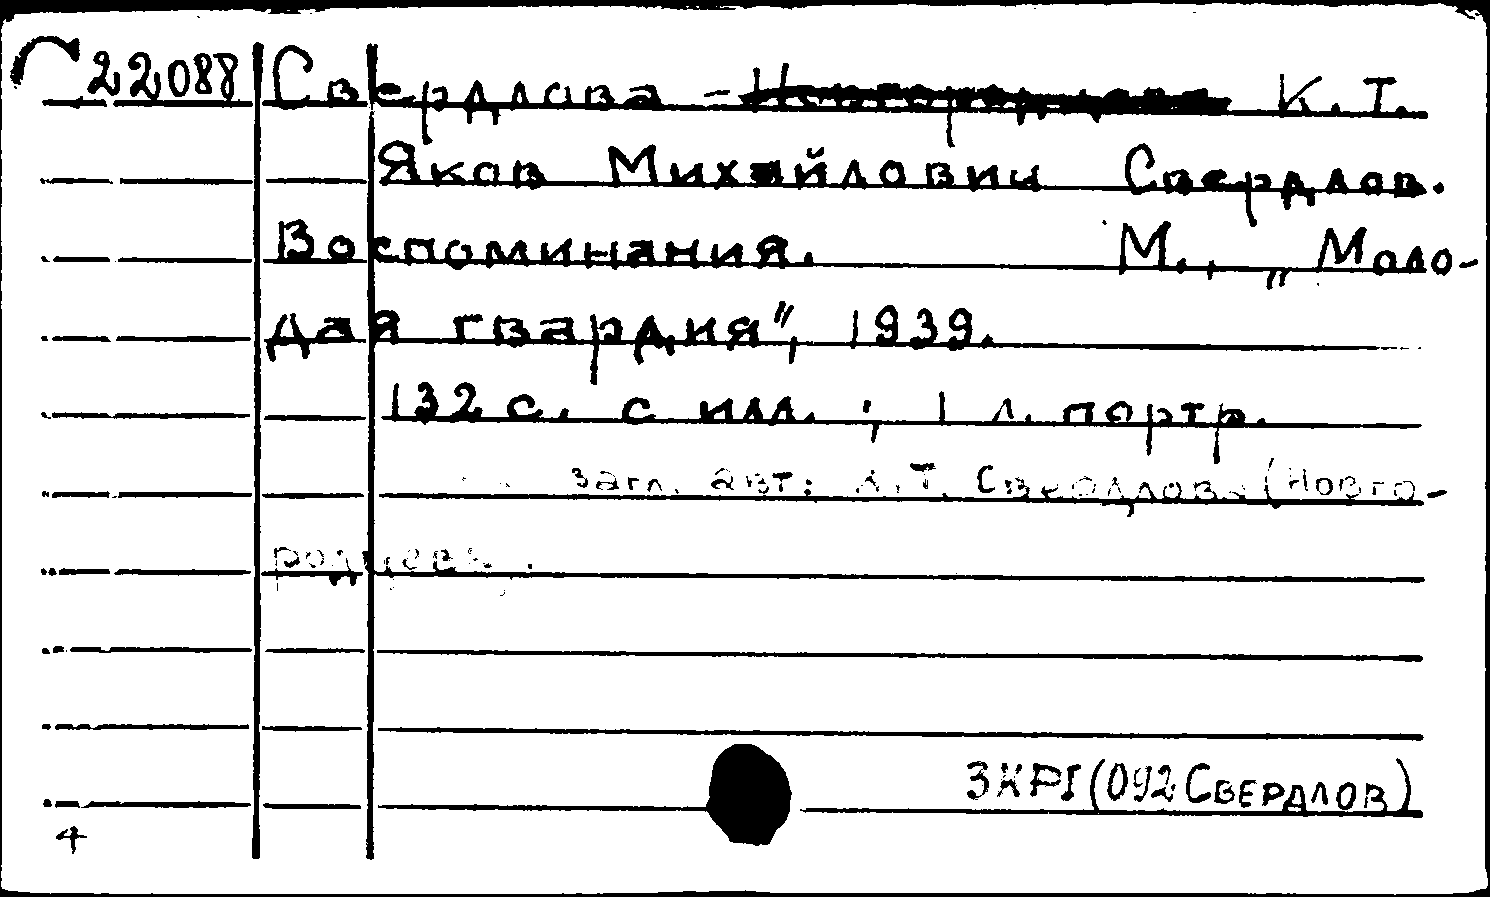 22088 Свердлова - Новгородцева К.Т.
Яков Михайлович Свердлов.
Воспоминания. М., „Моло-
дая гвардия", 1939.
132 с. с илл. ; 1 л. портр.
загл. авт: К.Т. Свердлова (Новго-
родцева.
3КР1 (092 Свердлов)
4